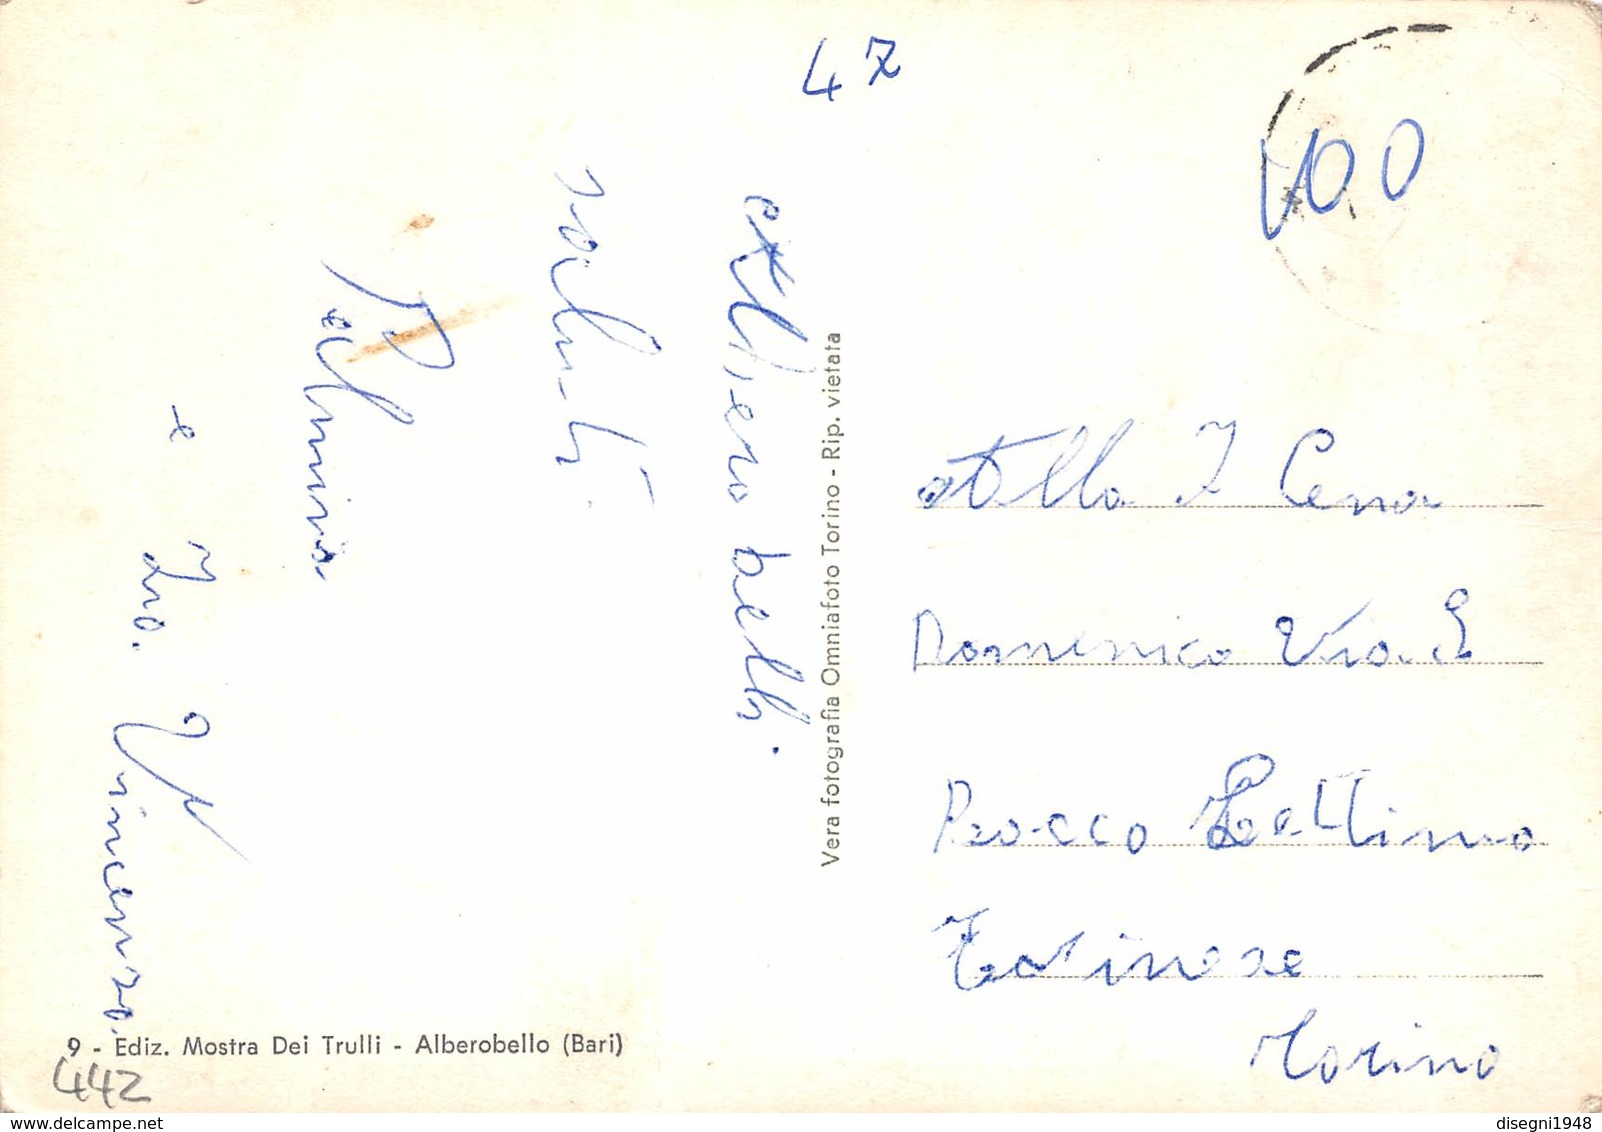 47
100
albero belli.
saluti.
Palmina
e Zio.
Vincenzo.
Vera fotografia Omniafoto Torino - Rip. vietata
Cena
Domenico Via
Settimo
Torinese
Torino
9 - Ediz. Mostra Dei Trulli - Alberobello (Bari)
442
www.delcampe.net
disegni1948